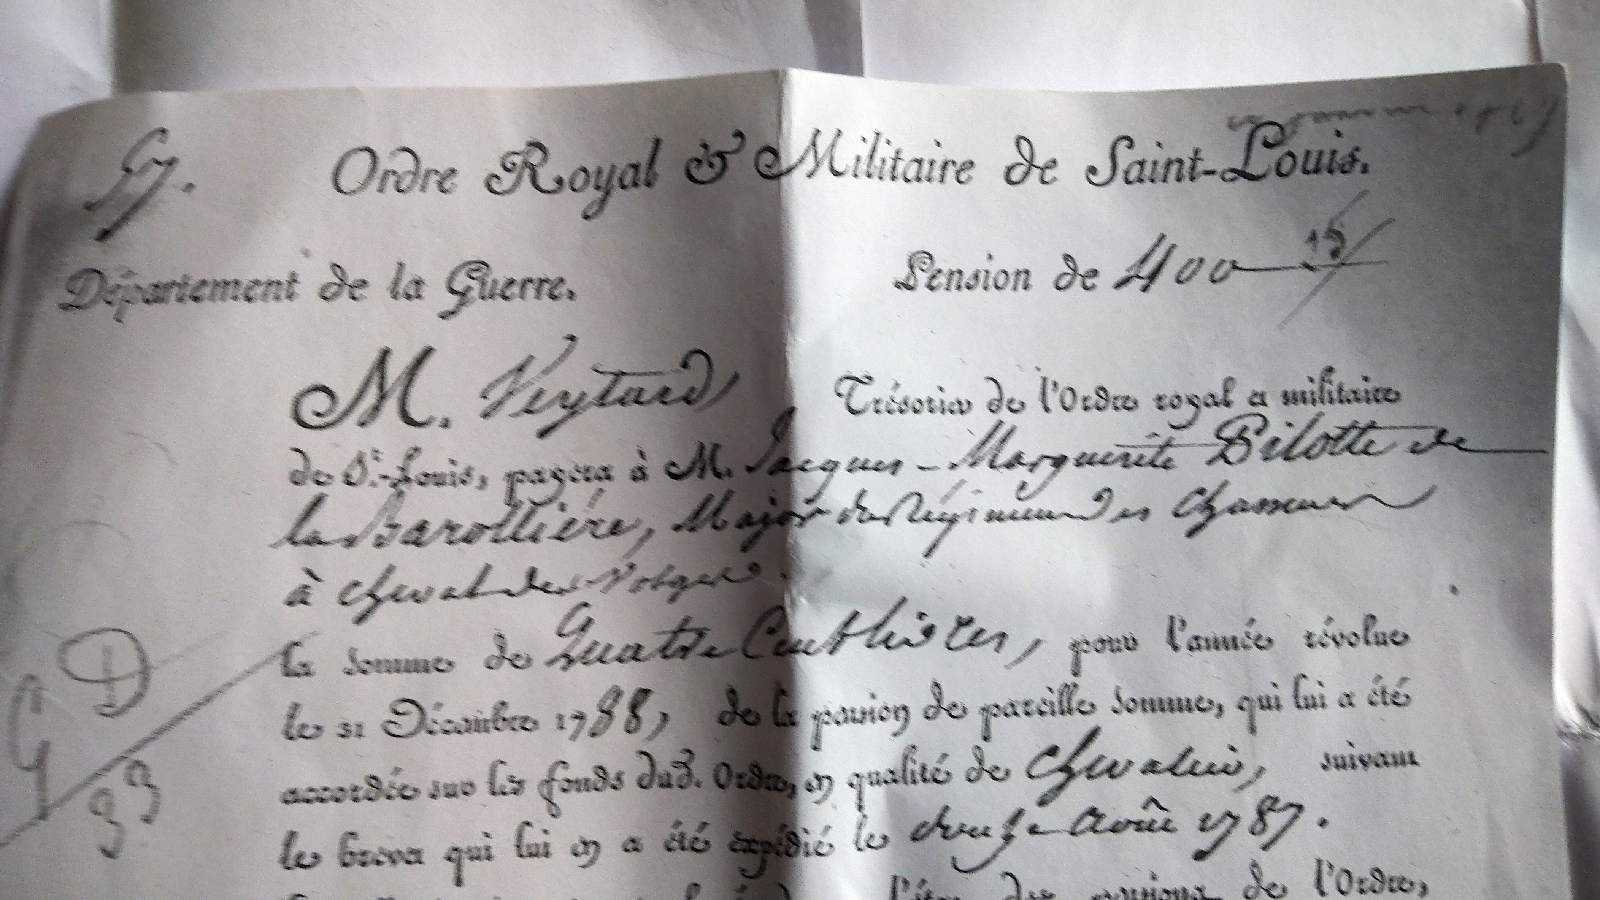 57.
Ordre Royal & Militaire de Saint-Louis.
Département de la Guerre.
Pension de 400 
M. Veytard, Trésorier de l'Ordre royal et militaire
de St.-Louis, payera à M. Jacques-Marguerite Pilotte de
la Barollière, Major du Régiment des Chasseurs
à cheval des Vosges
la somme de Quatre Cent livres, pour l'année révolue
le 31 Décembre 1788, de la pension de pareille somme, qui lui a été
accordée sur les fonds dud. Ordre, en qualité de Chevalier, suivant
le brevet qui lui en a été expédié le douze Août 1787.
l'état des pensions de l'Ordre,
G D
93